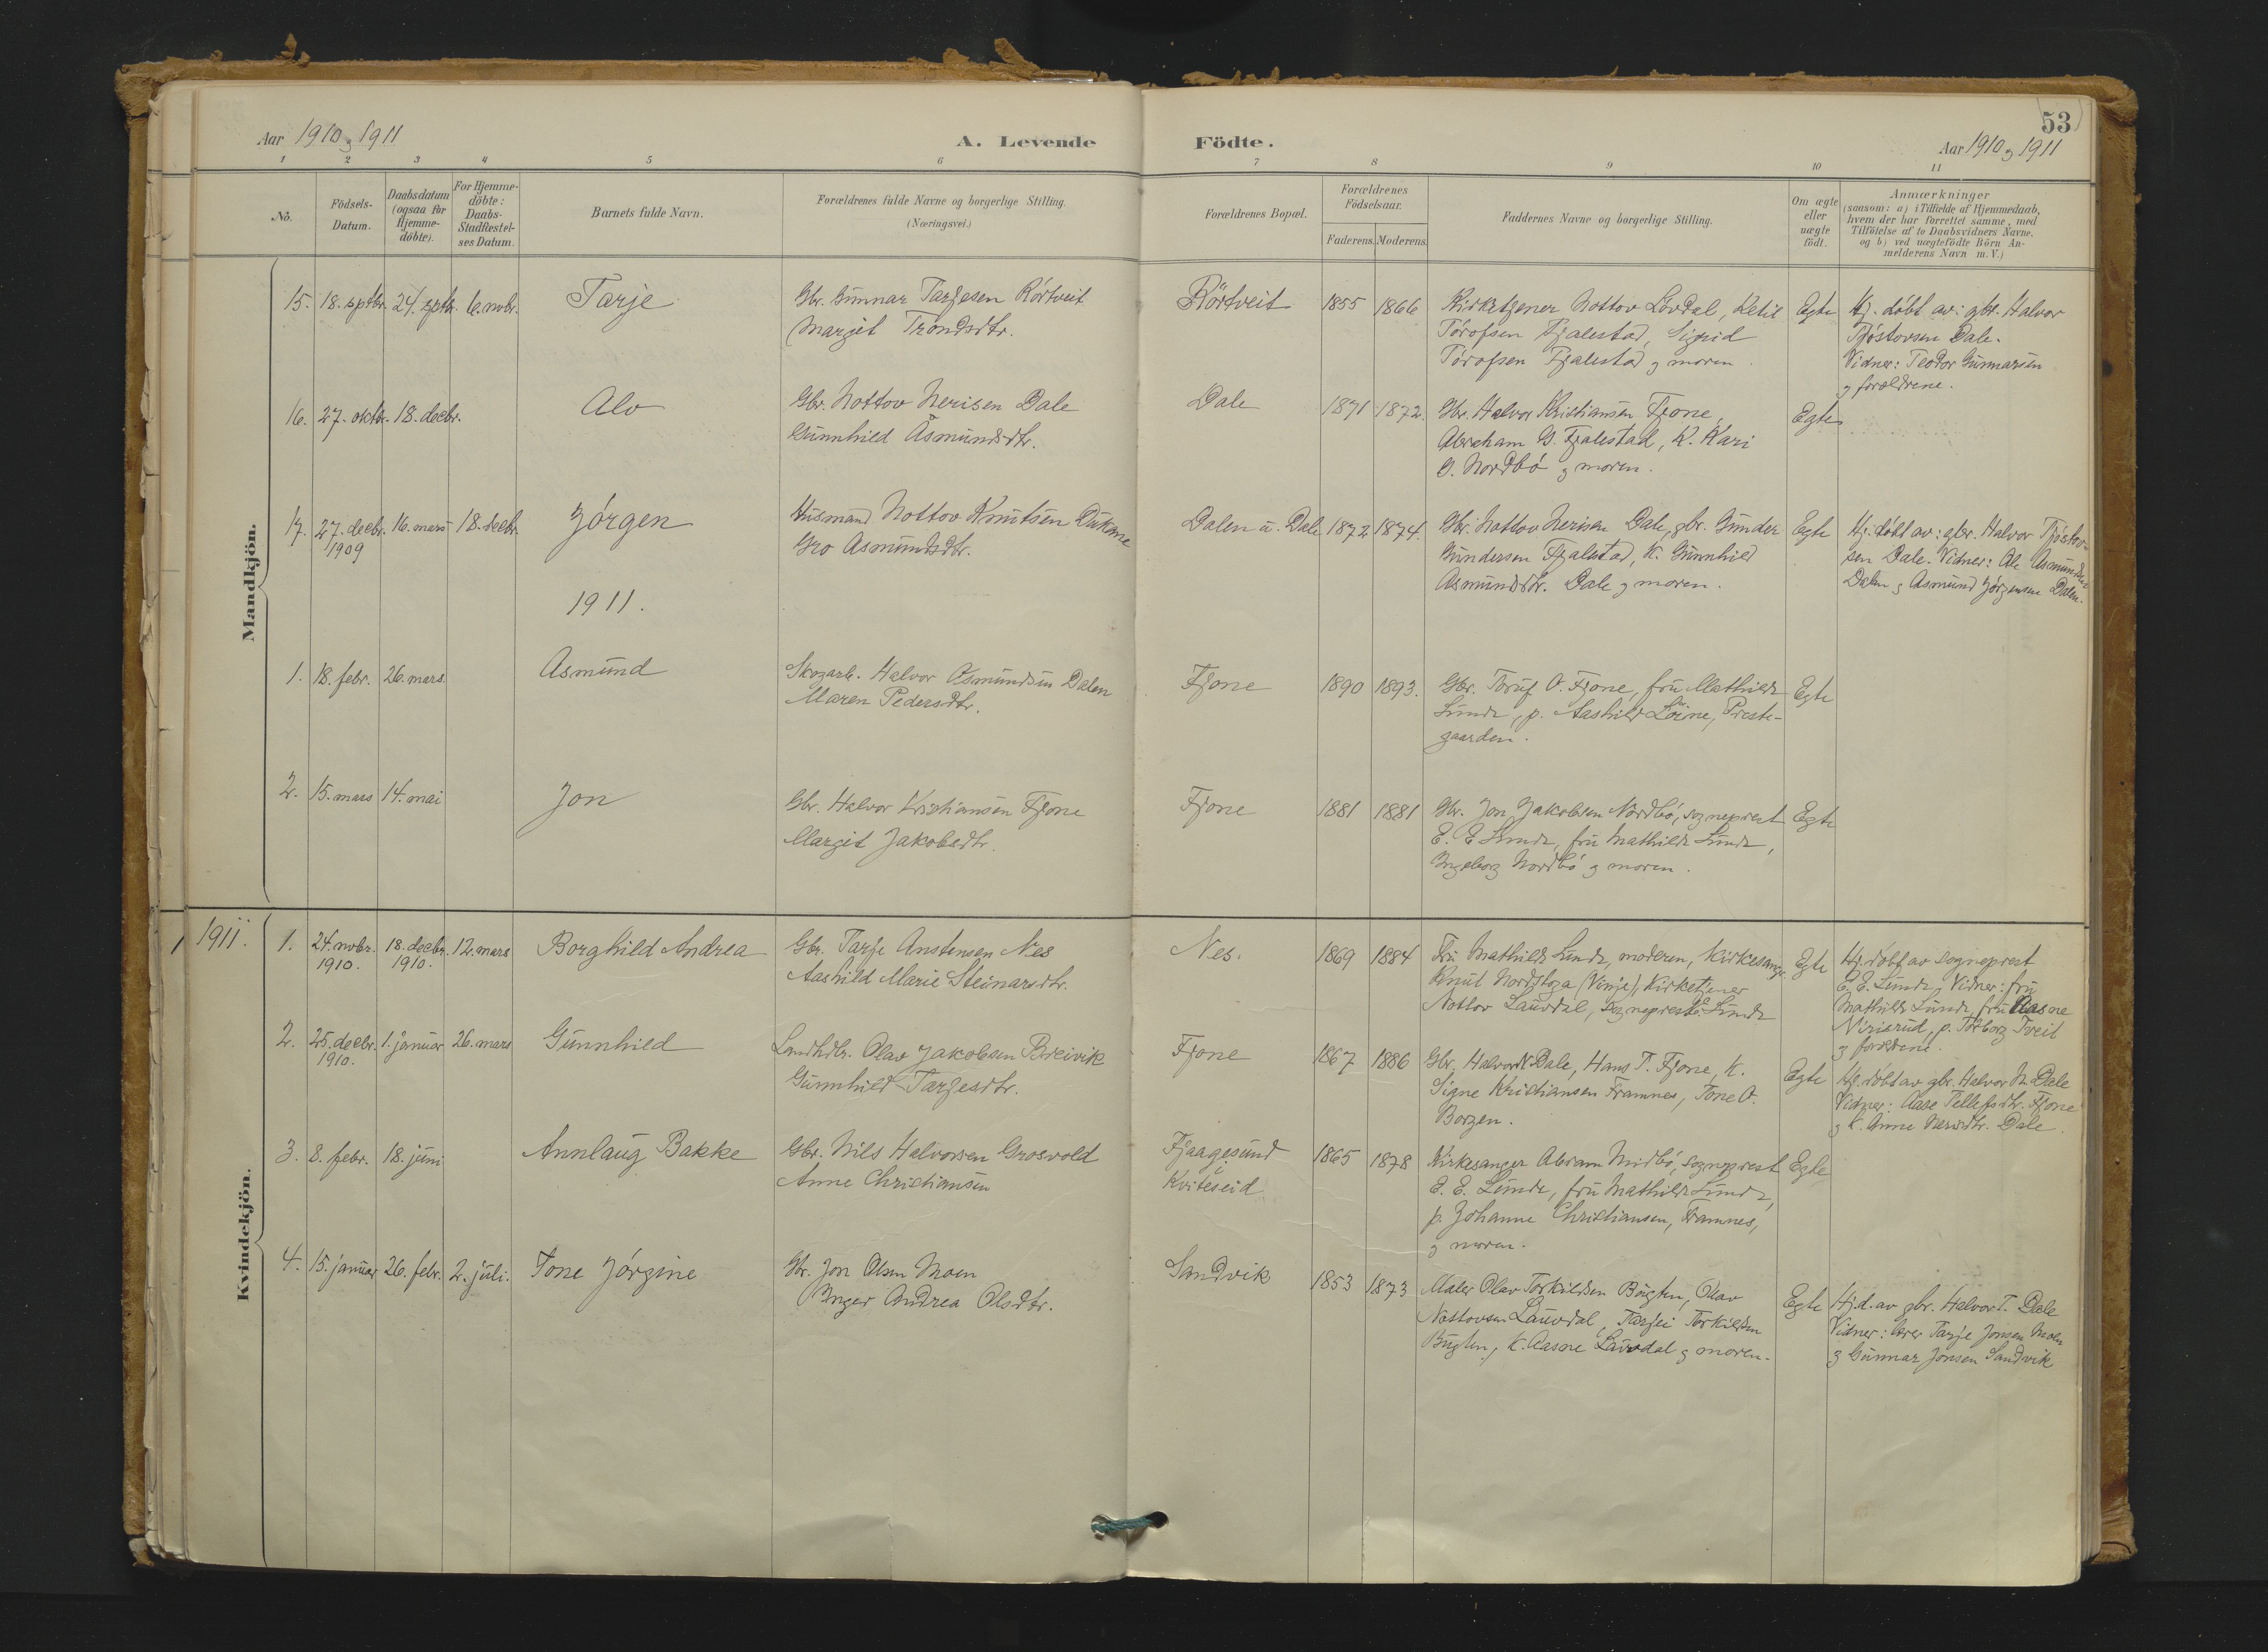 53
Aar 1910 og 1911
A. Levende
Födte.
Aar 1910 og 1911
1 2 3 4 5 6 7 8 9 10 11
No.
Födsels-
Datum.
Daabsdatum
(ogsaa for
Hjemme-
döbte).
For Hjemme-
döbte:
Daabs-
Stadfæstel-
ses Datum.
Barnets fulde Navn.
Forældrenes fulde Navne og borgerlige Stilling.
(Næringsvei.)
Forældrenes Bopæl.
Forældrenes
Födselsaar.
Faderens. Moderens.
Faddernes Navne og borgerlige Stilling.
Om ægte
eller
uægte
födt.
Anmærkninger
(saasom: a) i Tilfælde af Hjemmedaab,
hvem der har forrettet samme, med
Tilföielse af to Daabsvidners Navne,
og b) ved uægtefödte Börn An-
melderens Navn m. V.)
Mandkjön.
15. 18. sptbr. 24. sptbr. 6. novbr. Tarje
Gbr. Gunnar Tarjesen Rörtveit
Margit Trondsdtr.
Rörtveit 1855 1866
Kirketjener Nottov Lövdal, Ketil
Törofsen Fjalestad, Sigrid
Törofsen Fjalestad og moren.
Egte
Hj. döbt av: gbr. Halvor
Tjöstovsen Dale.
Vidner: Teodor Gunnarsen
og forældrene.
16. 27. oktbr. 18. decbr. Alv
Gbr. Nottov Nerisen Dale
Gunnhild Åsmundsdtr.
Dale 1871 1872.
Gbr. Halvor Kristiansen Fjone,
Abraham G. Fjalestad, K. Kari
G. Nordbö og moren.
Egte
17. 27. decbr. 16. mars 18. decbr. Jörgen
1909
Husmand Nottov Knutsen
Gro Asmundsdtr.
Dalen u. Dale 1872 1874.
Gbr. Nottov Nerisen Dale, gbr. Gunder
Gundersen Fjalestad, K. Gunnhild
Asmundsdtr. Dale og moren.
Egte
Hj. döbt av: gbr. Halvor Tjöstov-
sen Dale. Vidner: Ole Asmundsen
Dalen og Asmund Jörgensen Dalen.
1911.
1. 18. febr. 26. mars. Asmund
Skogarb. Halvor Asmundsen Dalen
Maren Pedersdtr.
Fjone 1890 1893.
Gbr. Toruf O. Fjone, fru Mathilde
Lunde, p. Aashild Löine, Preste-
gaarden.
Egte
2. 15. mars 14. mai Jon
Gbr. Halvor Kristiansen Fjone
Margit Jakobsdtr.
Fjone 1881 1881
Gbr. Jon Jakobsen Nordbö, sogneprest
E. E. Lunde, fru Mathilde Lunde,
Ingeborg Nordbö og moren.
Egte
1911.
Kvindekjön.
1. 24. novbr. 18. decbr. 12. mars Borghild Andrea
1910. 1910.
Gbr. Tarje Anstensen Nes
Aashild Marie Steinarsdtr.
Nes. 1869 1884
Fru Mathilde Lunde, moderen, kirkesanger
Knut Nordstoga (Vinje), Kirketjener
Nottov Lauvdal, sogneprest E. Lunde
Egte
Hj. döbt av sogneprest
E. E. Lunde, Vidner: fru
Mathilde Lunde, fru Aasne
Nirisrud, p. Torborg Tveit
og forældrene.
2. 25. decbr. 1. januar 26. mars Gunnhild
1910.
Landhdlr. Olav Jakobsen Breivik
Gunnhild Tarjesdtr.
Fjone 1867 1886
Gbr. Halvor N. Dale, Hans T. Fjone, K.
Signe Kristiansen Framnes, Tone O.
Borgen.
Egte
Hj. döbt av gbr. Halvor N. Dale
Vidner: Aase Tellefsdtr. Fjone
og K. Anne Nerisdtr. Dale.
3. 8. febr. 18. juni Annlaug Bakke
Gbr. Nils Halvorsen Grosvold
Anne Christiansen
Fjaagesund
i
Kviteseid
1865 1878
Kirkesanger Abram Midbö, sogneprest
E. E. Lunde, fru Mathilde Lunde,
p. Johanne Christiansen, Framnes,
og moren.
Egte
4. 15. januar 26. febr. 2. juli. Tone Jörgine
Gbr. Jon Olsen Moen
Inger Andrea Olsdtr.
Sandvik 1853 1873
Maler Olav Torkildsen Bugten, Olav
Nottovsen Lauvdal, Tarjei Torkildsen
Bugten, K. Aasne Lauvdal og moren.
Egte
Hj.d. av gbr. Halvor T. Dale
Vidner: lærer Tarje Jonsen Moen
og Gunnar Jonsen Sandvik